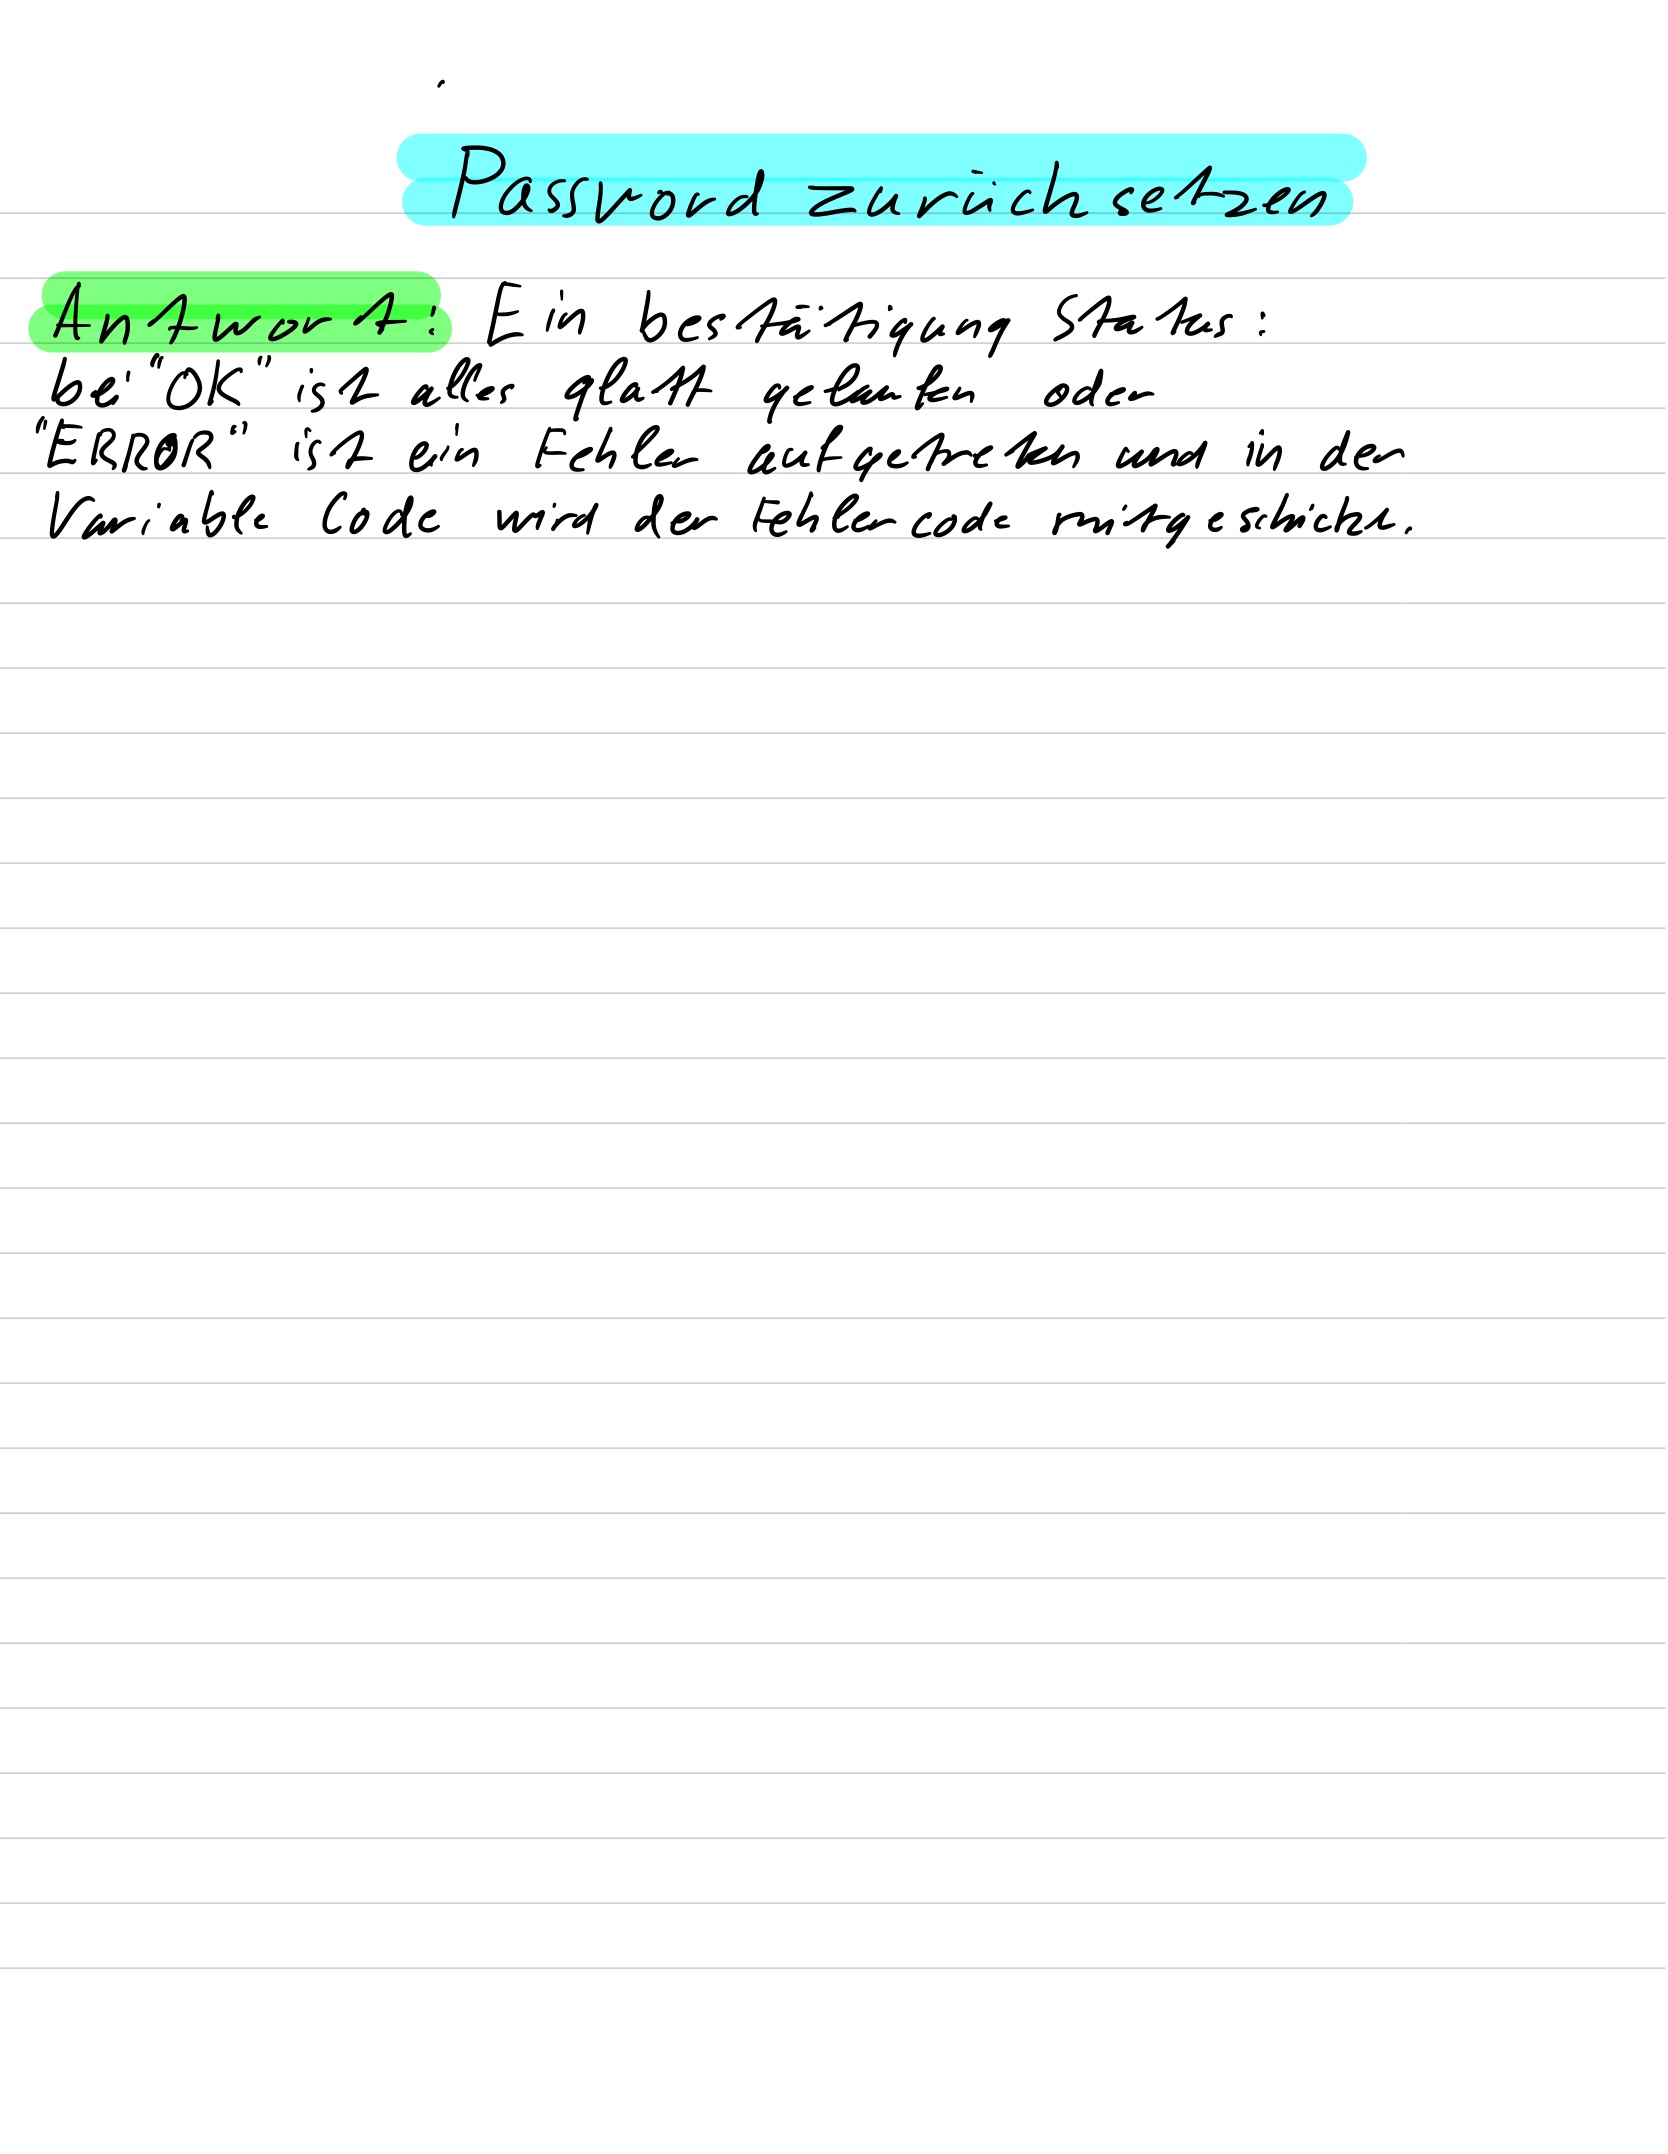 Password zurücksetzen
Antwort: Ein bestätigung Status:
bei "OK" ist alles glatt gelaufen oder
"ERROR" ist ein Fehler aufgetreten und in der
Variable Code wird der Fehlercode mitgeschickt.